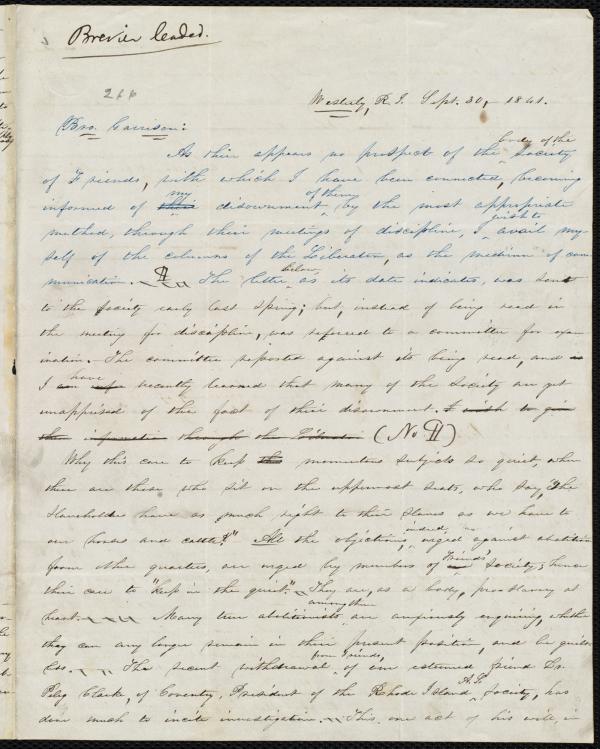 Brevier leaded.
266
Westerly, R. I. Sept. 30, 1841.
Bro. Garrison:
As their appears no prospect of the body of the Society
of Friends, with which I have been connected, becoming
informed of this my disownment of them, by the most appropriate
method, through their meetings of discipline, I wish to avail my-
self of the columns of the Liberator, as the medium of com-
munication. ¶ The letter below, as its date indicates, was sent
to the Society early last Spring; but, instead of being read in
the meeting for discipline, was referred to a committee for exam-
ination. The committee reported against its being read, and
I have recently learned that many of the Society are yet
unapprised of the fact of their disownment. I wish to give
the information through the Liberator (No ¶)
Why this care to keep this momentous subject so quiet, when
there are those who sit on the uppermost seats, who say, "The
slaveholders have as much right to their slaves as we have to
our horses and cattle?" All the objections, indeed, urged against abolition
from other quarters, are urged by members of Friends' Society; hence
their care to "keep in the quiet." They are, as a body, pro-slavery at
heart. Many true abolitionists among them are anxiously enquiring, whether
they can any longer remain in their present position, and be guilt-
less. The recent withdrawal from Friends, of our esteemed friend Dr.
Peleg Clarke, of Coventry, President of the Rhode Island A. S. Society, has
done much to incite investigation. This one act of his will, in